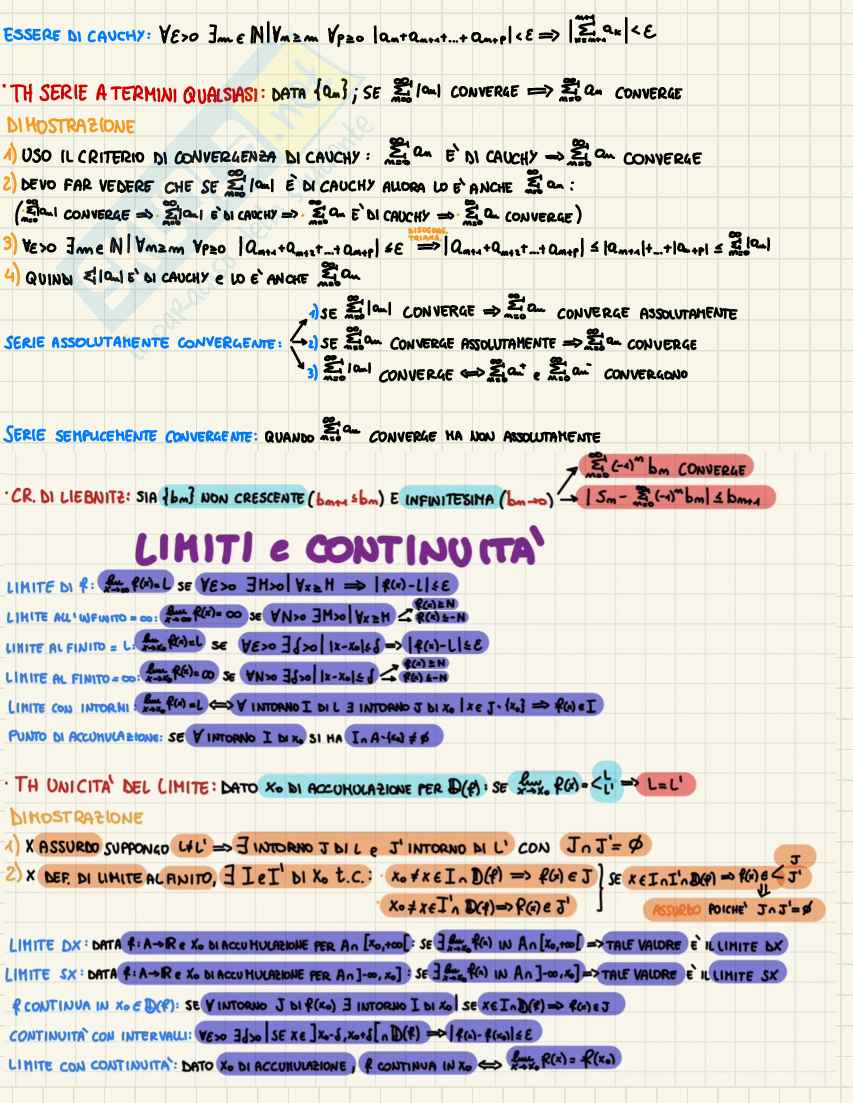 ESSERE DI CAUCHY: ∀ε>0 ∃m∈ℕ|∀n≥m ∀p≥0 |an+an+1+...+an+p|<ε ⟹ |∑ak|<ε
· TH SERIE A TERMINI QUALSIASI: DATA {an}; SE ∑|an| CONVERGE ⟹ ∑an CONVERGE
DIMOSTRAZIONE
1) USO IL CRITERIO DI CONVERGENZA DI CAUCHY: ∑an E' DI CAUCHY ⟹ ∑an CONVERGE
2) DEVO FAR VEDERE CHE SE ∑|an| È DI CAUCHY ALLORA LO E' ANCHE ∑an:
(∑|an| CONVERGE ⟹ ∑|an| E' DI CAUCHY ⟹ ∑an E' DI CAUCHY ⟹ ∑an CONVERGE)
3) ∀ε>0 ∃m∈ℕ|∀n≥m ∀p≥0 |an+1+an+2+...+an+p|≤ε ⟹ |an+1+an+2+...+an+p| ≤ |an+1|+...+|an+p| ≤ ∑|an|
4) QUINDI ∑|an| E' DI CAUCHY e LO E' ANCHE ∑an
1) SE ∑|an| CONVERGE ⟹ ∑an CONVERGE ASSOLUTAMENTE
SERIE ASSOLUTAMENTE CONVERGENTE: 2) SE ∑an CONVERGE ASSOLUTAMENTE ⟹ ∑an CONVERGE
3) ∑|an| CONVERGE ⟺ ∑an⁺ e ∑an⁻ CONVERGONO
SERIE SEMPLICEMENTE CONVERGENTE: QUANDO ∑an CONVERGE MA NON ASSOLUTAMENTE
∑(-1)ⁿ bn CONVERGE
· CR. DI LIEBNITZ: SIA {bn} NON CRESCENTE (bn+1≤bn) E INFINITESIMA (bn→0) → |Sn - ∑(-1)ⁿ bn| ≤ bn+1
LIMITI e CONTINUITA'
LIMITE DI f: lim x→∞ f(x)=L SE ∀ε>0 ∃M>0|∀x≥M ⟹ |f(x)-L|≤ε
LIMITE ALL'INFINITO=∞: lim x→∞ f(x)=∞ SE ∀N>0 ∃M>0|∀x≥M f(x)≥N f(x)≤-N
LIMITE AL FINITO = L: lim x→x₀ f(x)=L SE ∀ε>0 ∃δ>0||x-x₀|≤δ ⟹ |f(x)-L|≤ε
LIMITE AL FINITO=∞: lim x→x₀ f(x)=∞ SE ∀N>0 ∃δ>0||x-x₀|≤δ f(x)≥N f(x)≤-N
LIMITE CON INTORNI: lim x→x₀ f(x)=L ⟺ ∀ INTORNO I DI L ∃ INTORNO J DI x₀ | x∈J∖{x₀} ⟹ f(x)∈I
PUNTO DI ACCUMULAZIONE: SE ∀ INTORNO I DI x₀ SI HA I∩A∖{x₀}≠∅
· TH UNICITA' DEL LIMITE: DATO x₀ DI ACCUMULAZIONE PER D(f): SE lim x→x₀ f(x)=< L L' ⟹ L=L'
DIMOSTRAZIONE
1) X ASSURDO SUPPONGO L≠L' ⟹ ∃ INTORNO J DI L e J' INTORNO DI L' CON J∩J'=∅
2) X DEF. DI LIMITE AL FINITO, ∃ I e I' DI x₀ t.c.: x₀≠x∈I∩D(f) ⟹ f(x)∈J } SE x∈I∩I'∩D(f) ⟹ f(x)∈< J J'
x₀≠x∈I'∩D(f) ⟹ f(x)∈J' ASSURDO POICHE' J∩J'=∅
LIMITE DX: DATA f:A→ℝ e x₀ DI ACCUMULAZIONE PER A∩[x₀,+∞[: SE ∃ lim x→x₀ f(x) IN A∩[x₀,+∞[ ⟹ TALE VALORE E' IL LIMITE DX
LIMITE SX: DATA f:A→ℝ e x₀ DI ACCUMULAZIONE PER A∩]-∞,x₀]: SE ∃ lim x→x₀ f(x) IN A∩]-∞,x₀] ⟹ TALE VALORE E' IL LIMITE SX
f CONTINUA IN x₀∈D(f): SE ∀ INTORNO J DI f(x₀) ∃ INTORNO I DI x₀| SE x∈I∩D(f) ⟹ f(x)∈J
CONTINUITA' CON INTERVALLI: ∀ε>0 ∃δ>0|SE x∈]x₀-δ,x₀+δ[∩D(f) ⟹ |f(x)-f(x₀)|≤ε
LIMITE CON CONTINUITA': DATO x₀ DI ACCUMULAZIONE, f CONTINUA IN x₀ ⟺ lim x→x₀ f(x)=f(x₀)